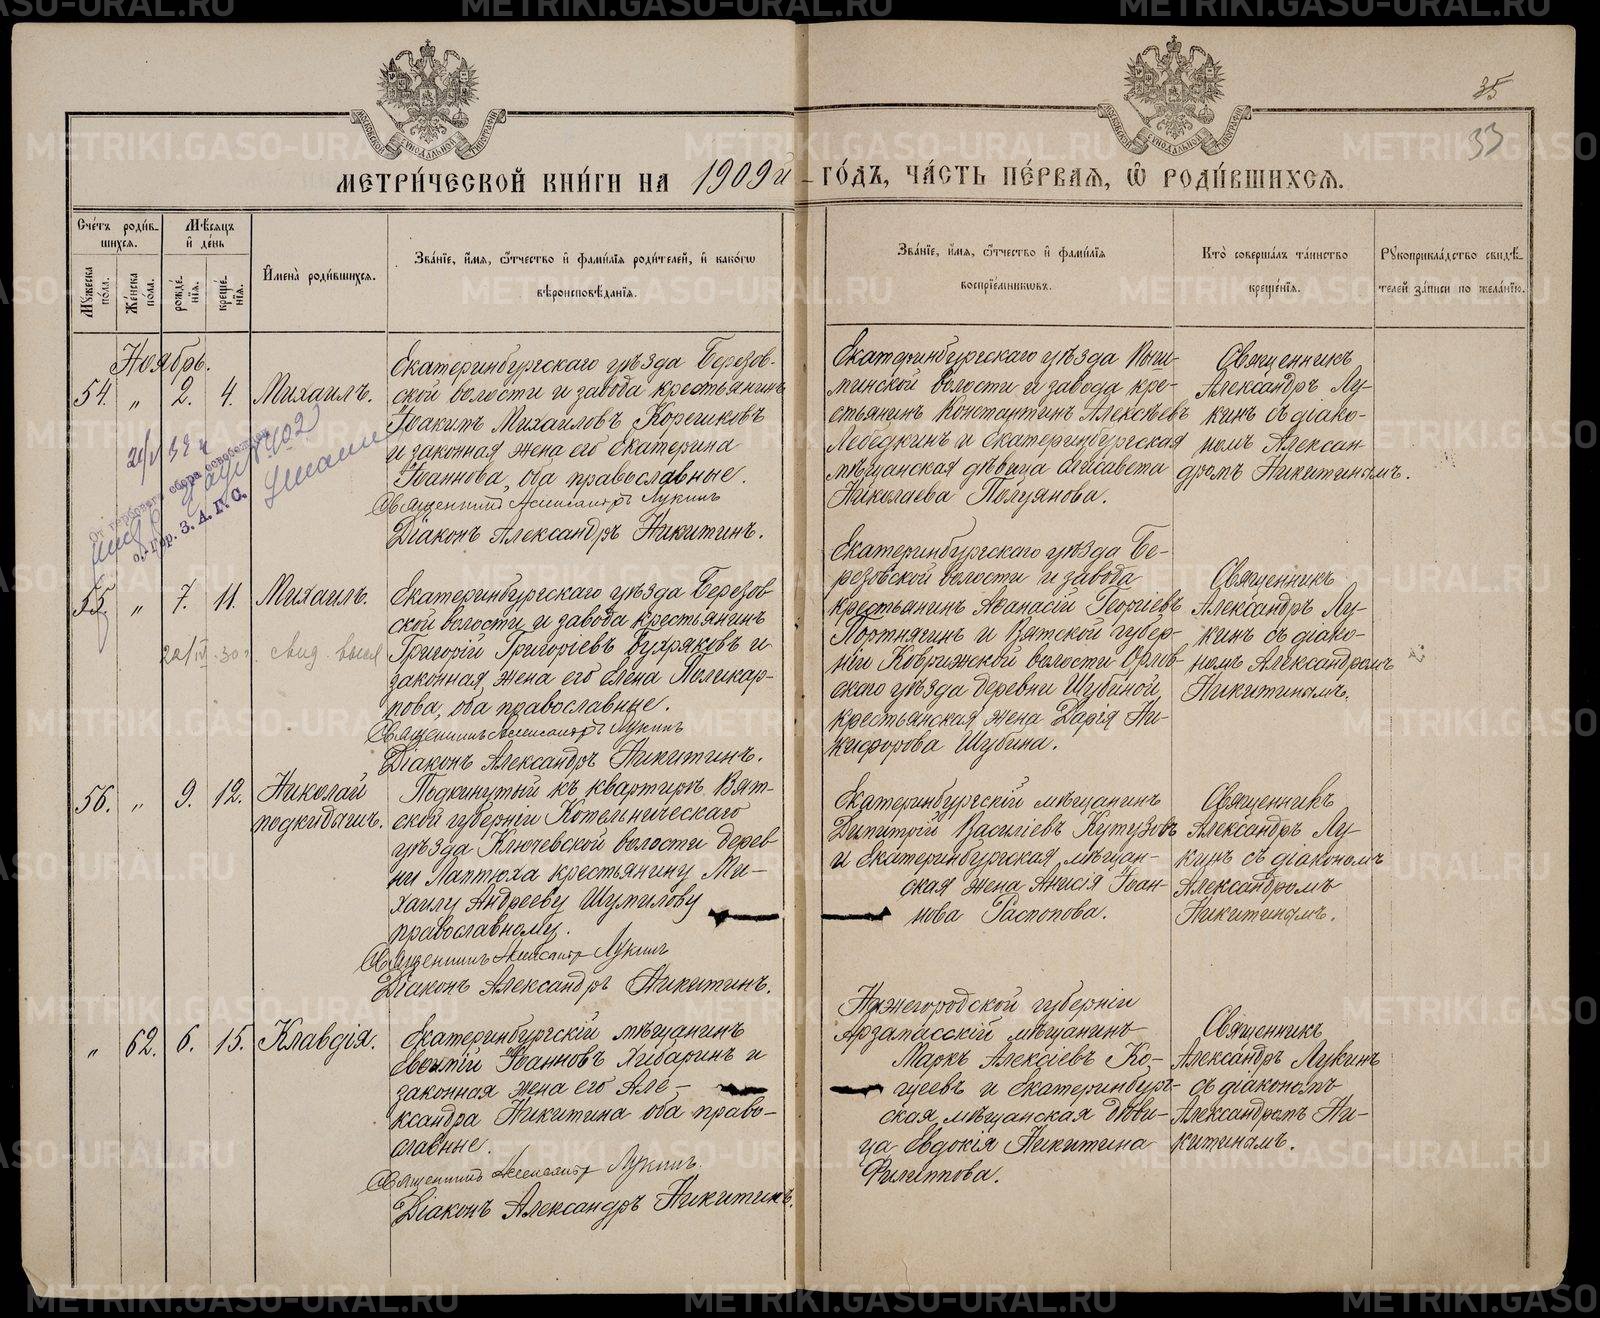 35
33
МЕТРИ́ЧЕСКОЙ КНИ́ГИ НА 1909й ГО́ДЪ, ЧА́СТЬ ПЕ́РВАЯ, Ѿ РОДИ́ВШИХСЯ.
Сче́тъ роди́в-
шихся.
Мѣ́сяцъ
и де́нь
Мꙋжеска пола.
Же́нска пола.
рожде́-
нїя.
креще́-
нїя.
Имена̀ роди́вшихся.
Зва́нїе, и́мя, ѻ́тчество и фами́лїя роди́телей, и како́гѡ
вѣроисповѣ́данїя.
Зва́нїе, и́мя, ѻ́тчество и фами́лїя
воспрїе́мникѡвъ.
Кто̀ соверша́лъ та́инство
креще́нїя.
Рꙋкоприкла́дство свидѣ́-
телей за́писи по жела́нїю.
Ноябрь.
54. „ 2. 4. Михаилъ.
Екатеринбургскаго уѣзда Березов-
ской волости и завода крестьянинъ
Іоакимъ Михаиловъ Корешковъ
и законная жена его Екатерина
Іоаннова, оба православные.
Священникъ Александръ Лукинъ
Діаконъ Александръ Никитинъ.
Екатеринбургскаго уѣзда Пыш-
минской волости и завода кре-
стьянинъ Константинъ Алексѣевъ
Лебедкинъ и Екатеринбургская
мѣщанская дѣвица Елисавета
Николаева Полуянова.
Священникъ
Александръ Лу-
кинъ съ діако-
номъ Алексан-
дромъ Никитинымъ.
55. „ 7. 11. Михаилъ.
Екатеринбургскаго уѣзда Березов-
ской волости и завода крестьянинъ
Григорій Григоріевъ Вухряковъ и
законная жена его Елена Поликар-
пова, оба православные.
Священникъ Александръ Лукинъ
Діаконъ Александръ Никитинъ.
Екатеринбургскаго уѣзда Бе-
резовской волости и завода
крестьянинъ Аѳанасій Георгіевъ
Портнягинъ и Вятской губер-
ніи Коврижской волости Орлов-
скаго уѣзда деревни Шубиной
крестьянская жена Дарія Ни-
кифорова Шубина.
Священникъ
Александръ Лу-
кинъ съ діако-
номъ Александромъ
Никитинымъ.
56. „ 9. 12. Николай
подкидышъ.
Подкинутый къ квартирѣ Вят-
ской губерніи Котельническаго
уѣзда Ключевской волости дерев-
ни Лаптюха крестьянину Ми-
хаилу Андрееву Шумилову
православному.
Священникъ Александръ Лукинъ
Діаконъ Александръ Никитинъ.
Екатеринбургскій мѣщанинъ
Димитрій Василіевъ Кутузовъ
и Екатеринбургская мѣщан-
ская жена Анисія Іоан-
нова Распопова.
Священникъ
Александръ Лу-
кинъ съ діакономъ
Александромъ
Никитинымъ.
„ 62. 6. 15. Клавдія.
Екатеринбургскій мѣщанинъ
Іоанновъ Хибаринъ и
законная жена его Але-
ксандра Никитина оба право-
славные.
Священникъ Александръ Лукинъ.
Діаконъ Александръ Никитинъ.
Нижегородской губерніи
Арзамасскій мѣщанинъ
Маркъ Алексіевъ Ко-
щеевъ и Екатеринбург-
ская мѣщанская дѣви-
ца Евдокія Никитина
Филиппова.
Священникъ
Александръ Лукинъ
съ діакономъ
Александромъ Ни-
китинымъ.
METRIKI.GASO-URAL.RU